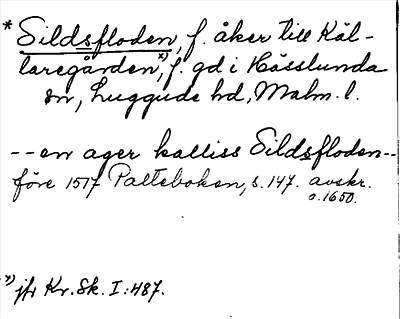 * Sildsfloden, f. åker till Käl-
laregården,*) f. gd i Hässlunda
sn, Luggude hd, Malm. l.
-- en ager kalliss Sildsfloden --
före 1517 Palteboken, s. 147. avskr.
o. 1650.
*) jfr Kr. Sk. I: 487.